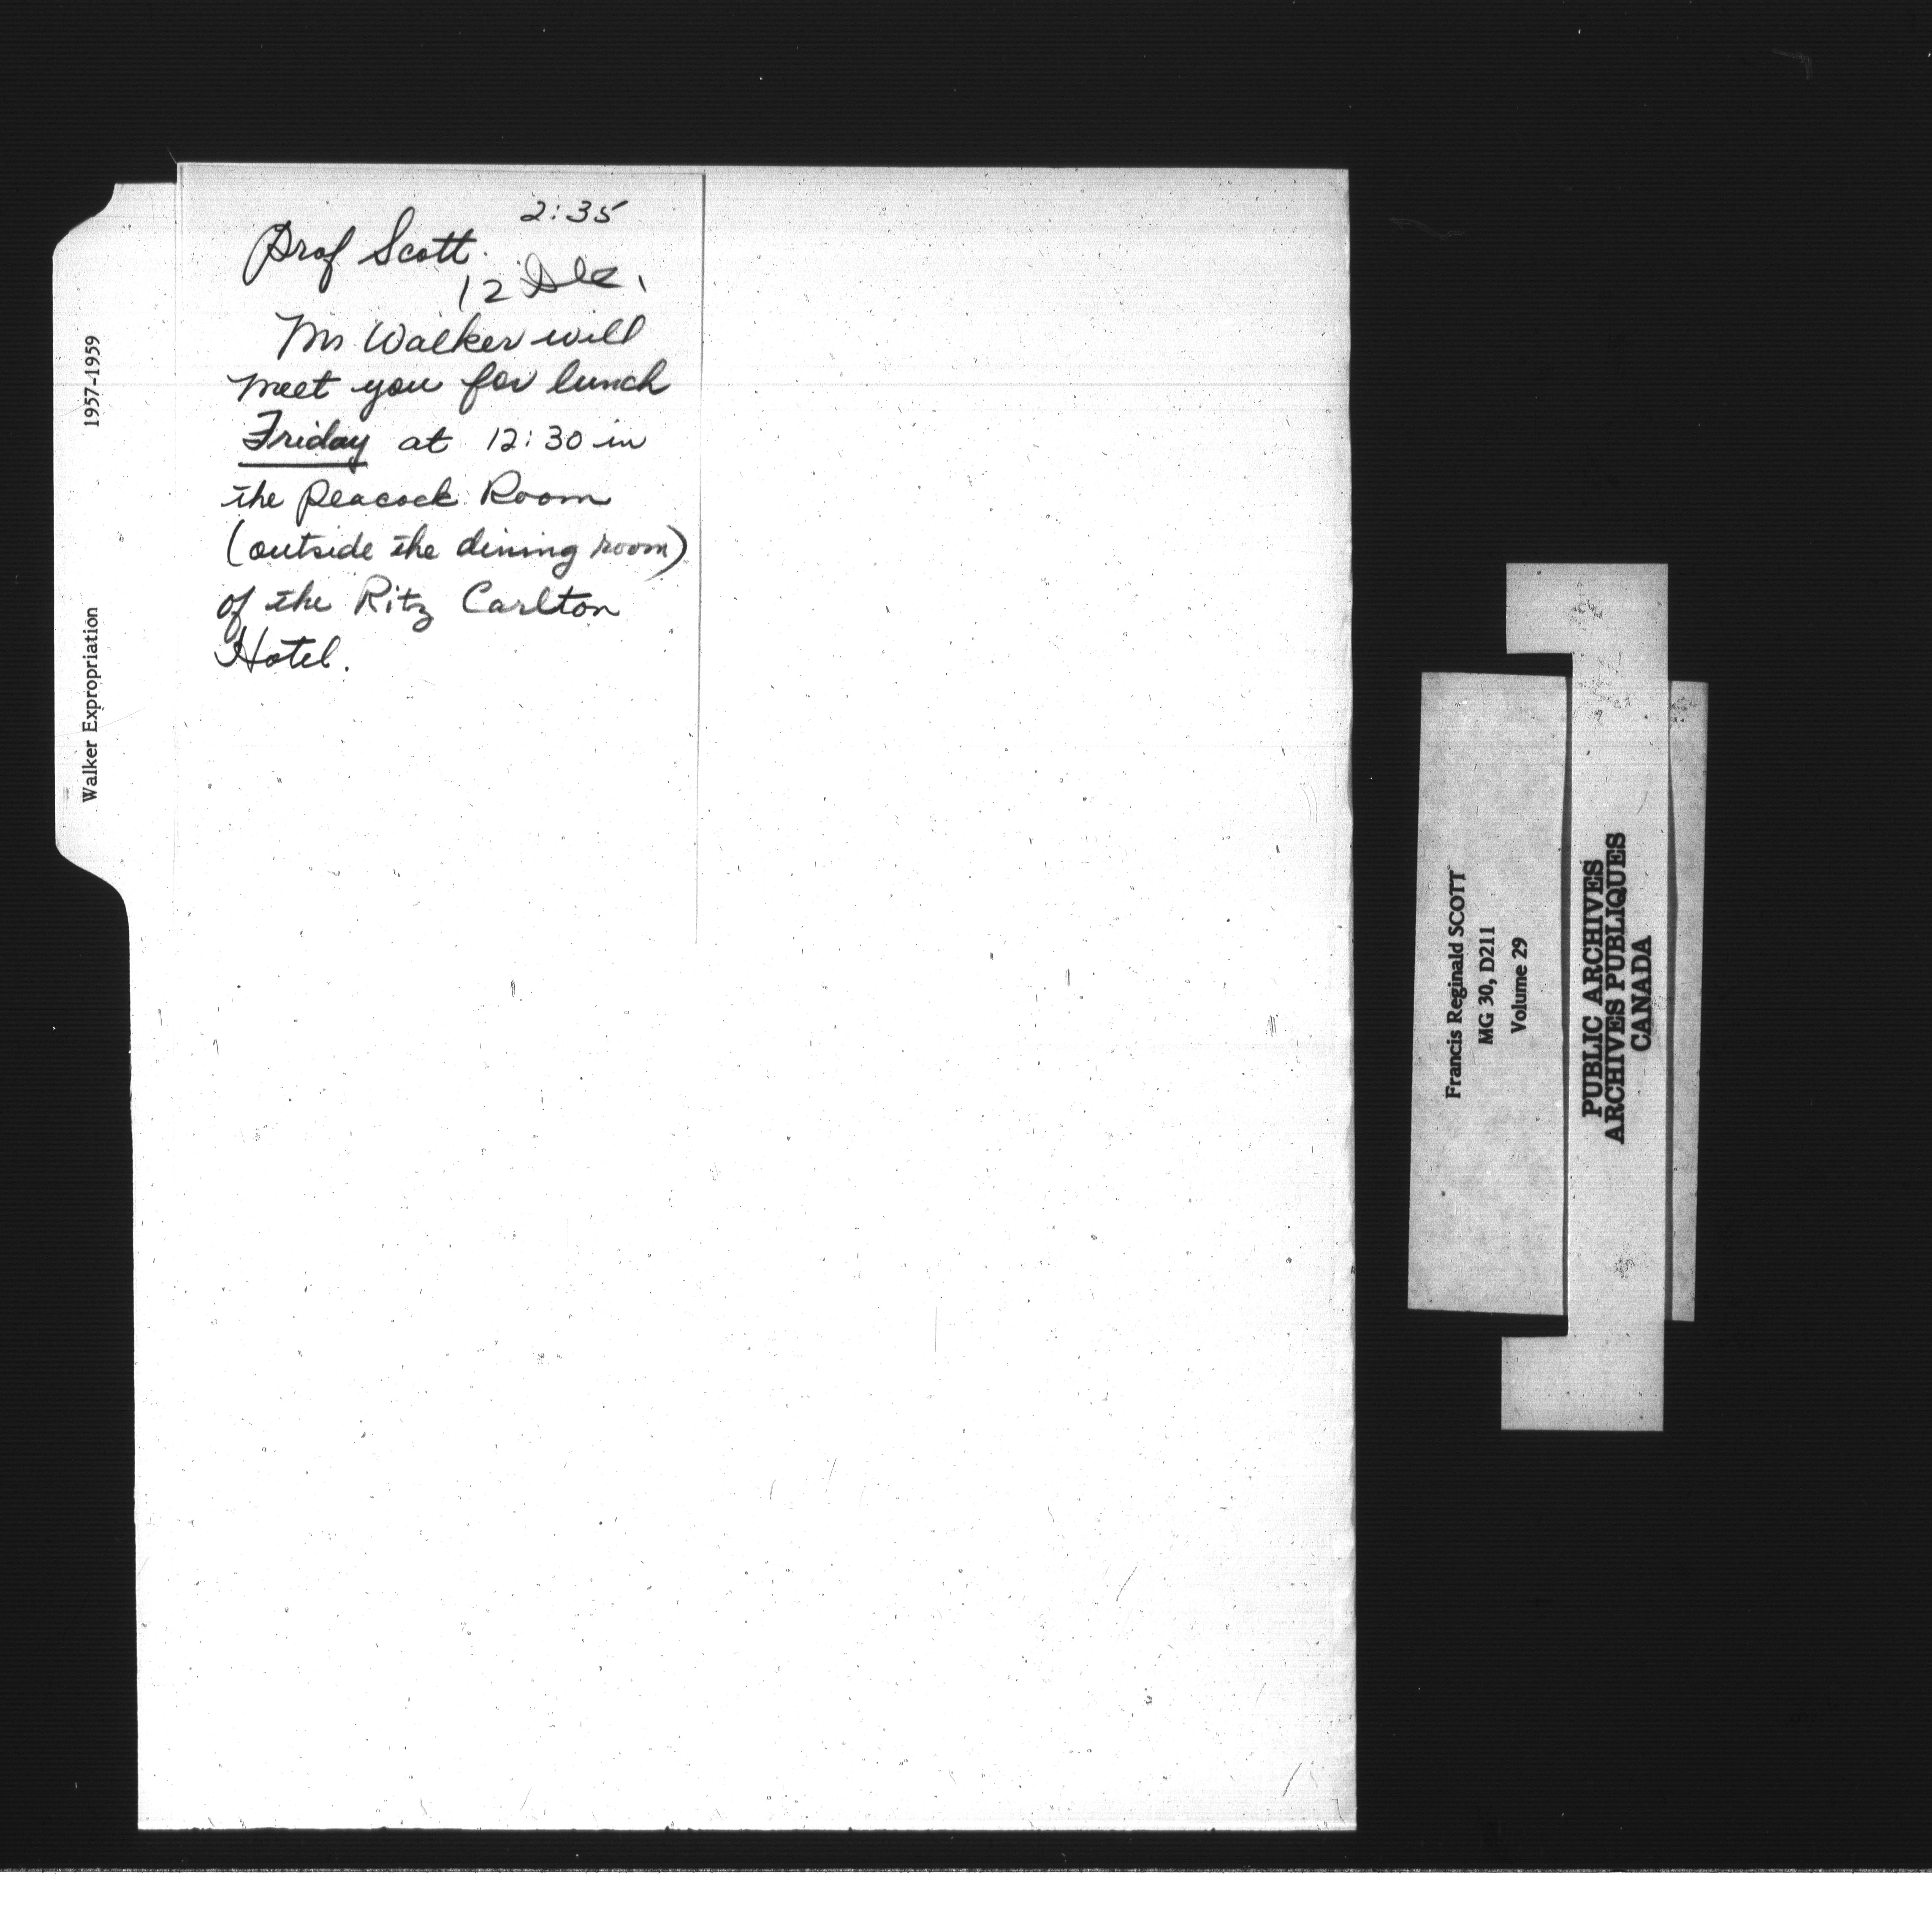 2:35
Prof Scott.
12 Dec.
Mr Walker will
meet you for lunch
Friday at 12:30 in
the Peacock Room
(outside the dining room)
of the Ritz Carlton
Hotel.
Walker Expropriation 1957-1959
Francis Reginald SCOTT
MG 30, D211
Volume 29
PUBLIC ARCHIVES
ARCHIVES PUBLIQUES
CANADA